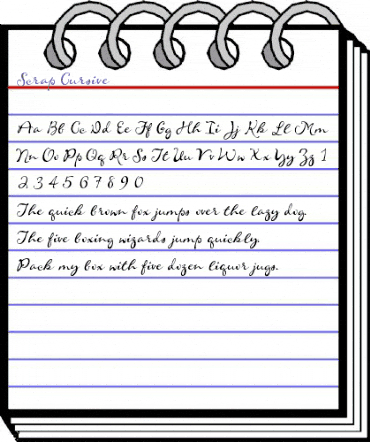 Scrap Cursive
Aa Bb Cc Dd Ee Ff Gg Hh Ii Jj Kk Ll Mm
Nn Oo Pp Qq Rr Ss Tt Uu Vv Ww Xx Yy Zz 1
2 3 4 5 6 7 8 9 0
The quick brown fox jumps over the lazy dog.
The five boxing wizards jump quickly.
Pack my box with five dozen liquor jugs.